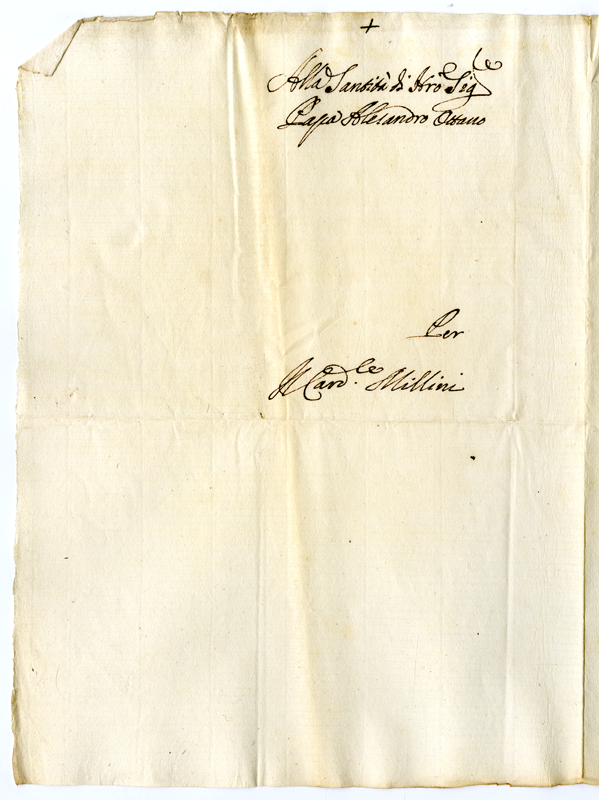 +
Alla Santità di Nro Sigre
Papa Alesandro Ottauo
Per
Il Card.le Millini